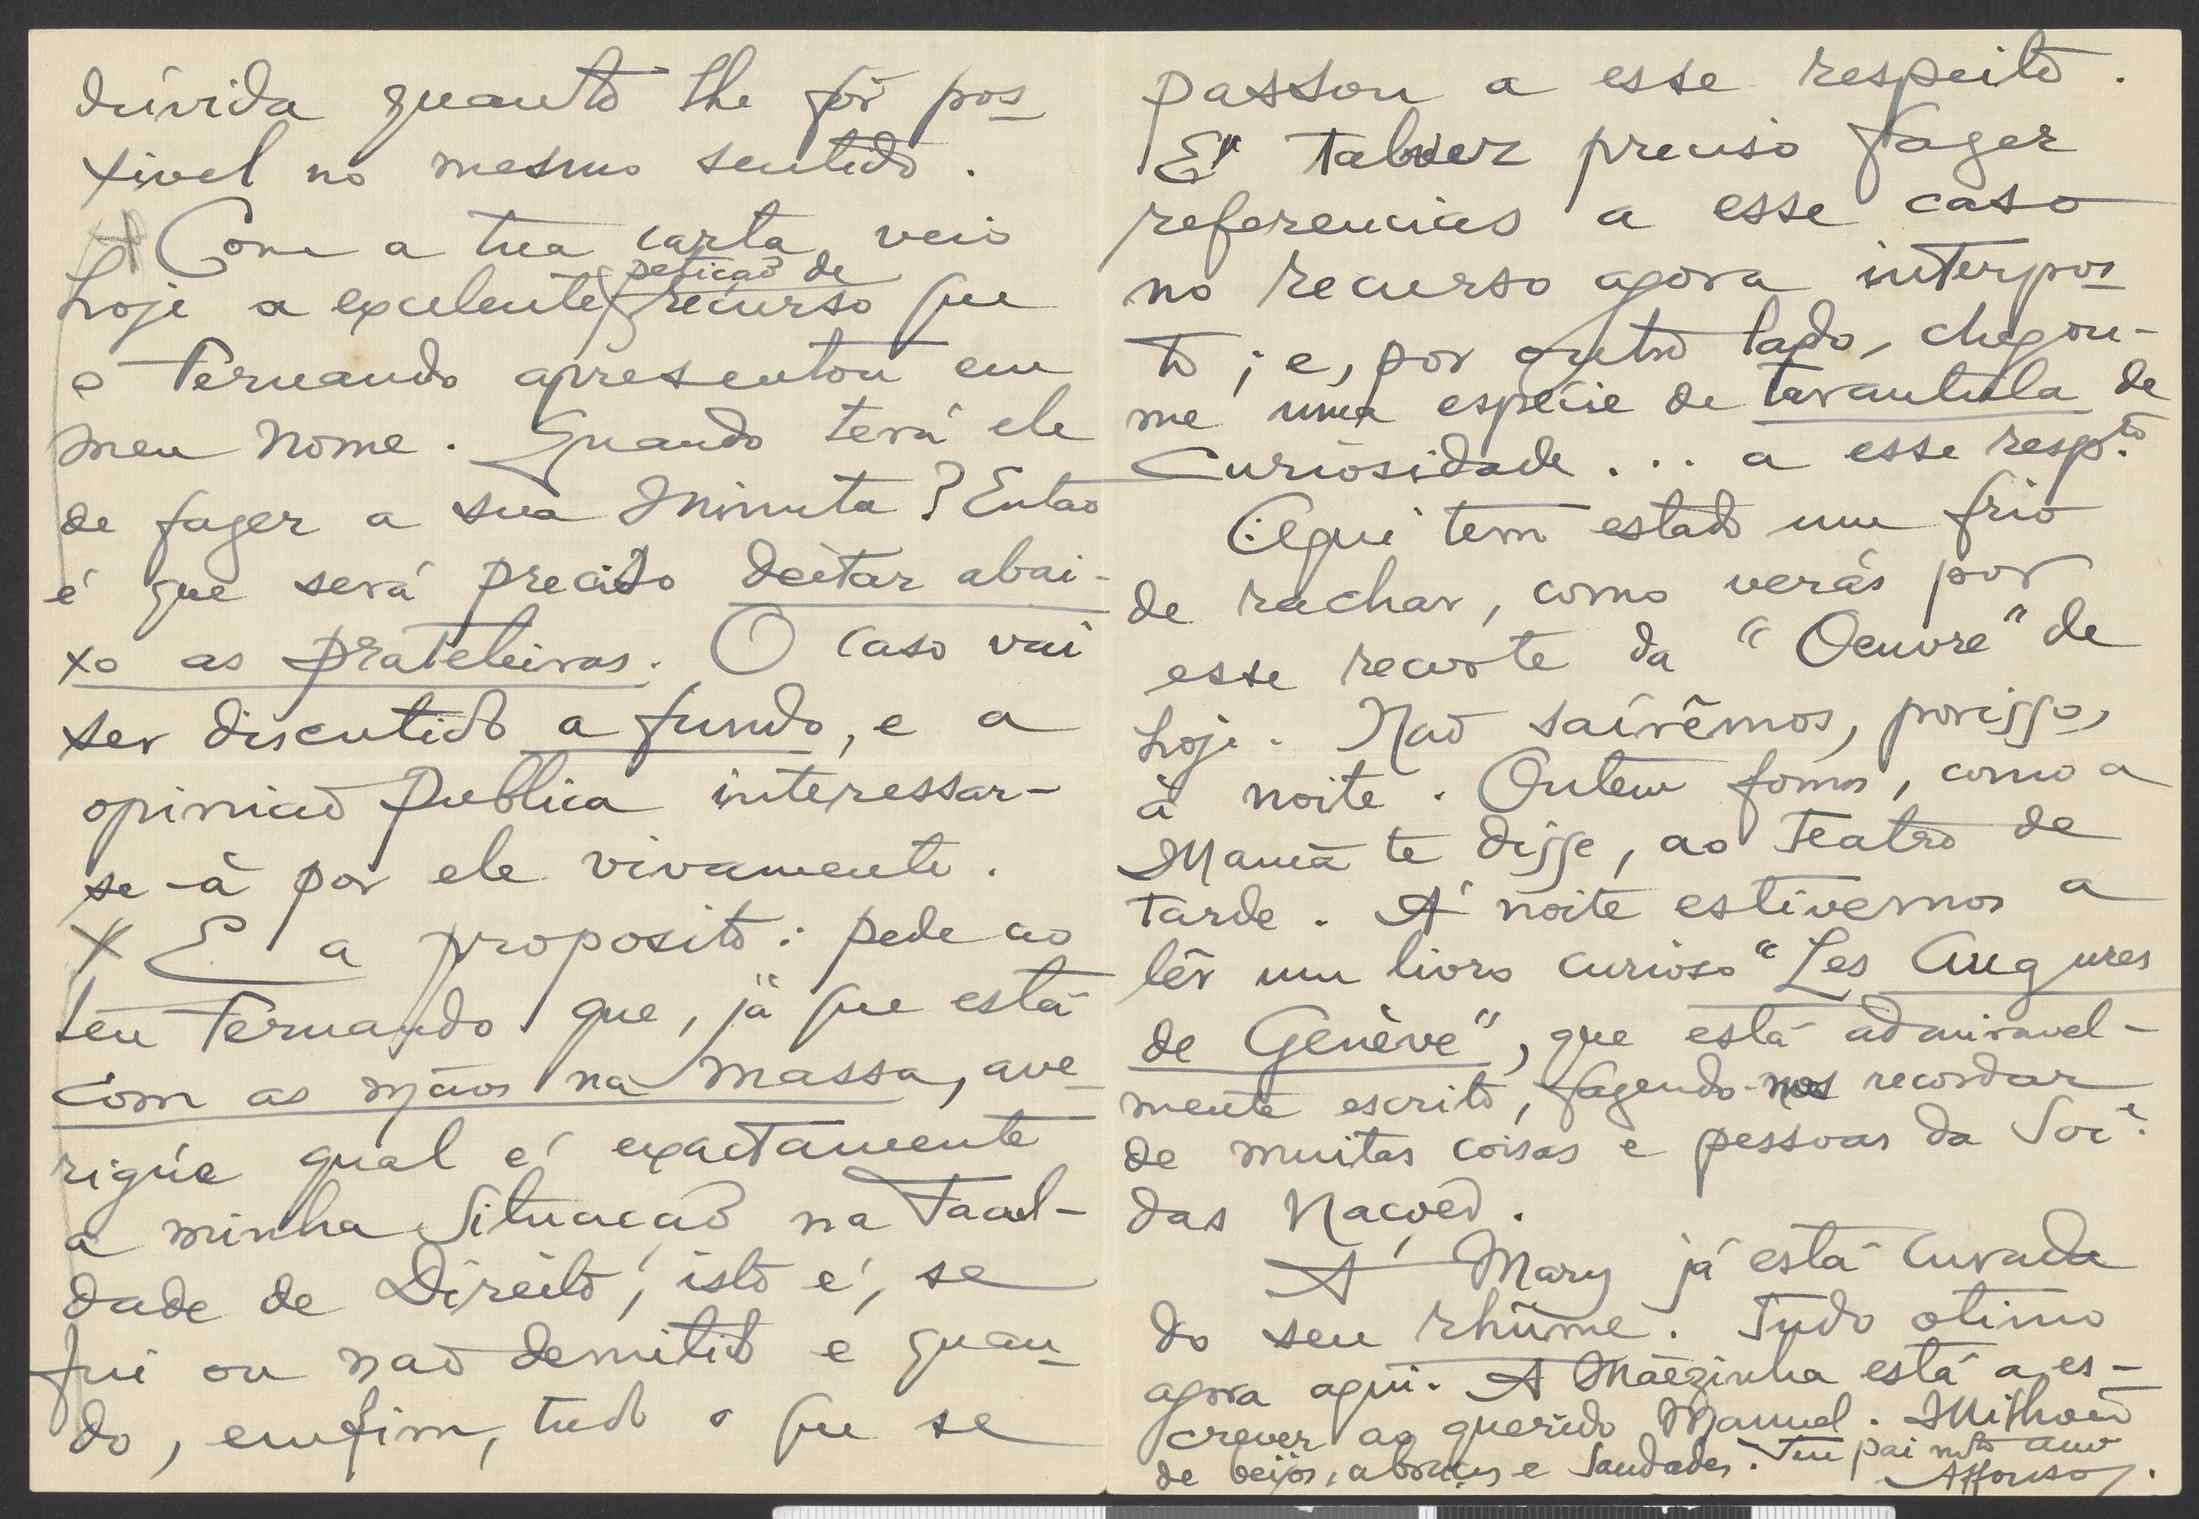 dúvida quanto lhe fôr pos-
sivel no mesmo sentido.
Com a tua carta, veio
petição de
hoje a excelente recurso que
o Fernando apresentou em
meu nome. Quando terá ele
de fazer a sua minuta? Então
é que será preciso deitar abai-
xo as prateleiras. O caso vai
ser discutido a fundo, e a
opinião publica interessar-
se-á por ele vivamente.
X E a proposito: pede ao
teu Fernando que, já que está
com as mãos na massa, ave-
rigúe qual é exactamente
a minha situação na Facul-
dade de Direito, isto é, se
fui ou não demitido e quan-
do, emfim, tudo o que se
passou a esse respeito.
E' talvez preciso fazer
referencias a esse caso
no recurso agora interpos-
to; e, por outro lado, chegou-
me uma espécie de tarantula de
curiosidade... a esse resp.to
Aqui tem estado um frio
de rachar, como verás por
esse recorte da "Oeuvre" de
hoje. Não sairêmos, porisso,
á noite. Ontem fomos, como a
Mamã te disse, ao Teatro de
tarde. A' noite estivemos a
lêr um livro curioso "Les Augures
de Genève", que está admiravel-
mente escrito, fazendo-nos recordar
de muitas coisas e pessoas da Soc.e
das Nações.
A Mary já está curada
do seu rhûme. Tudo otimo
agora aqui. A Mãezinha está a es-
crever ao querido Manuel. Milhões
de beijos, abraços e saudades. Teu pai mto amo
Affonso.